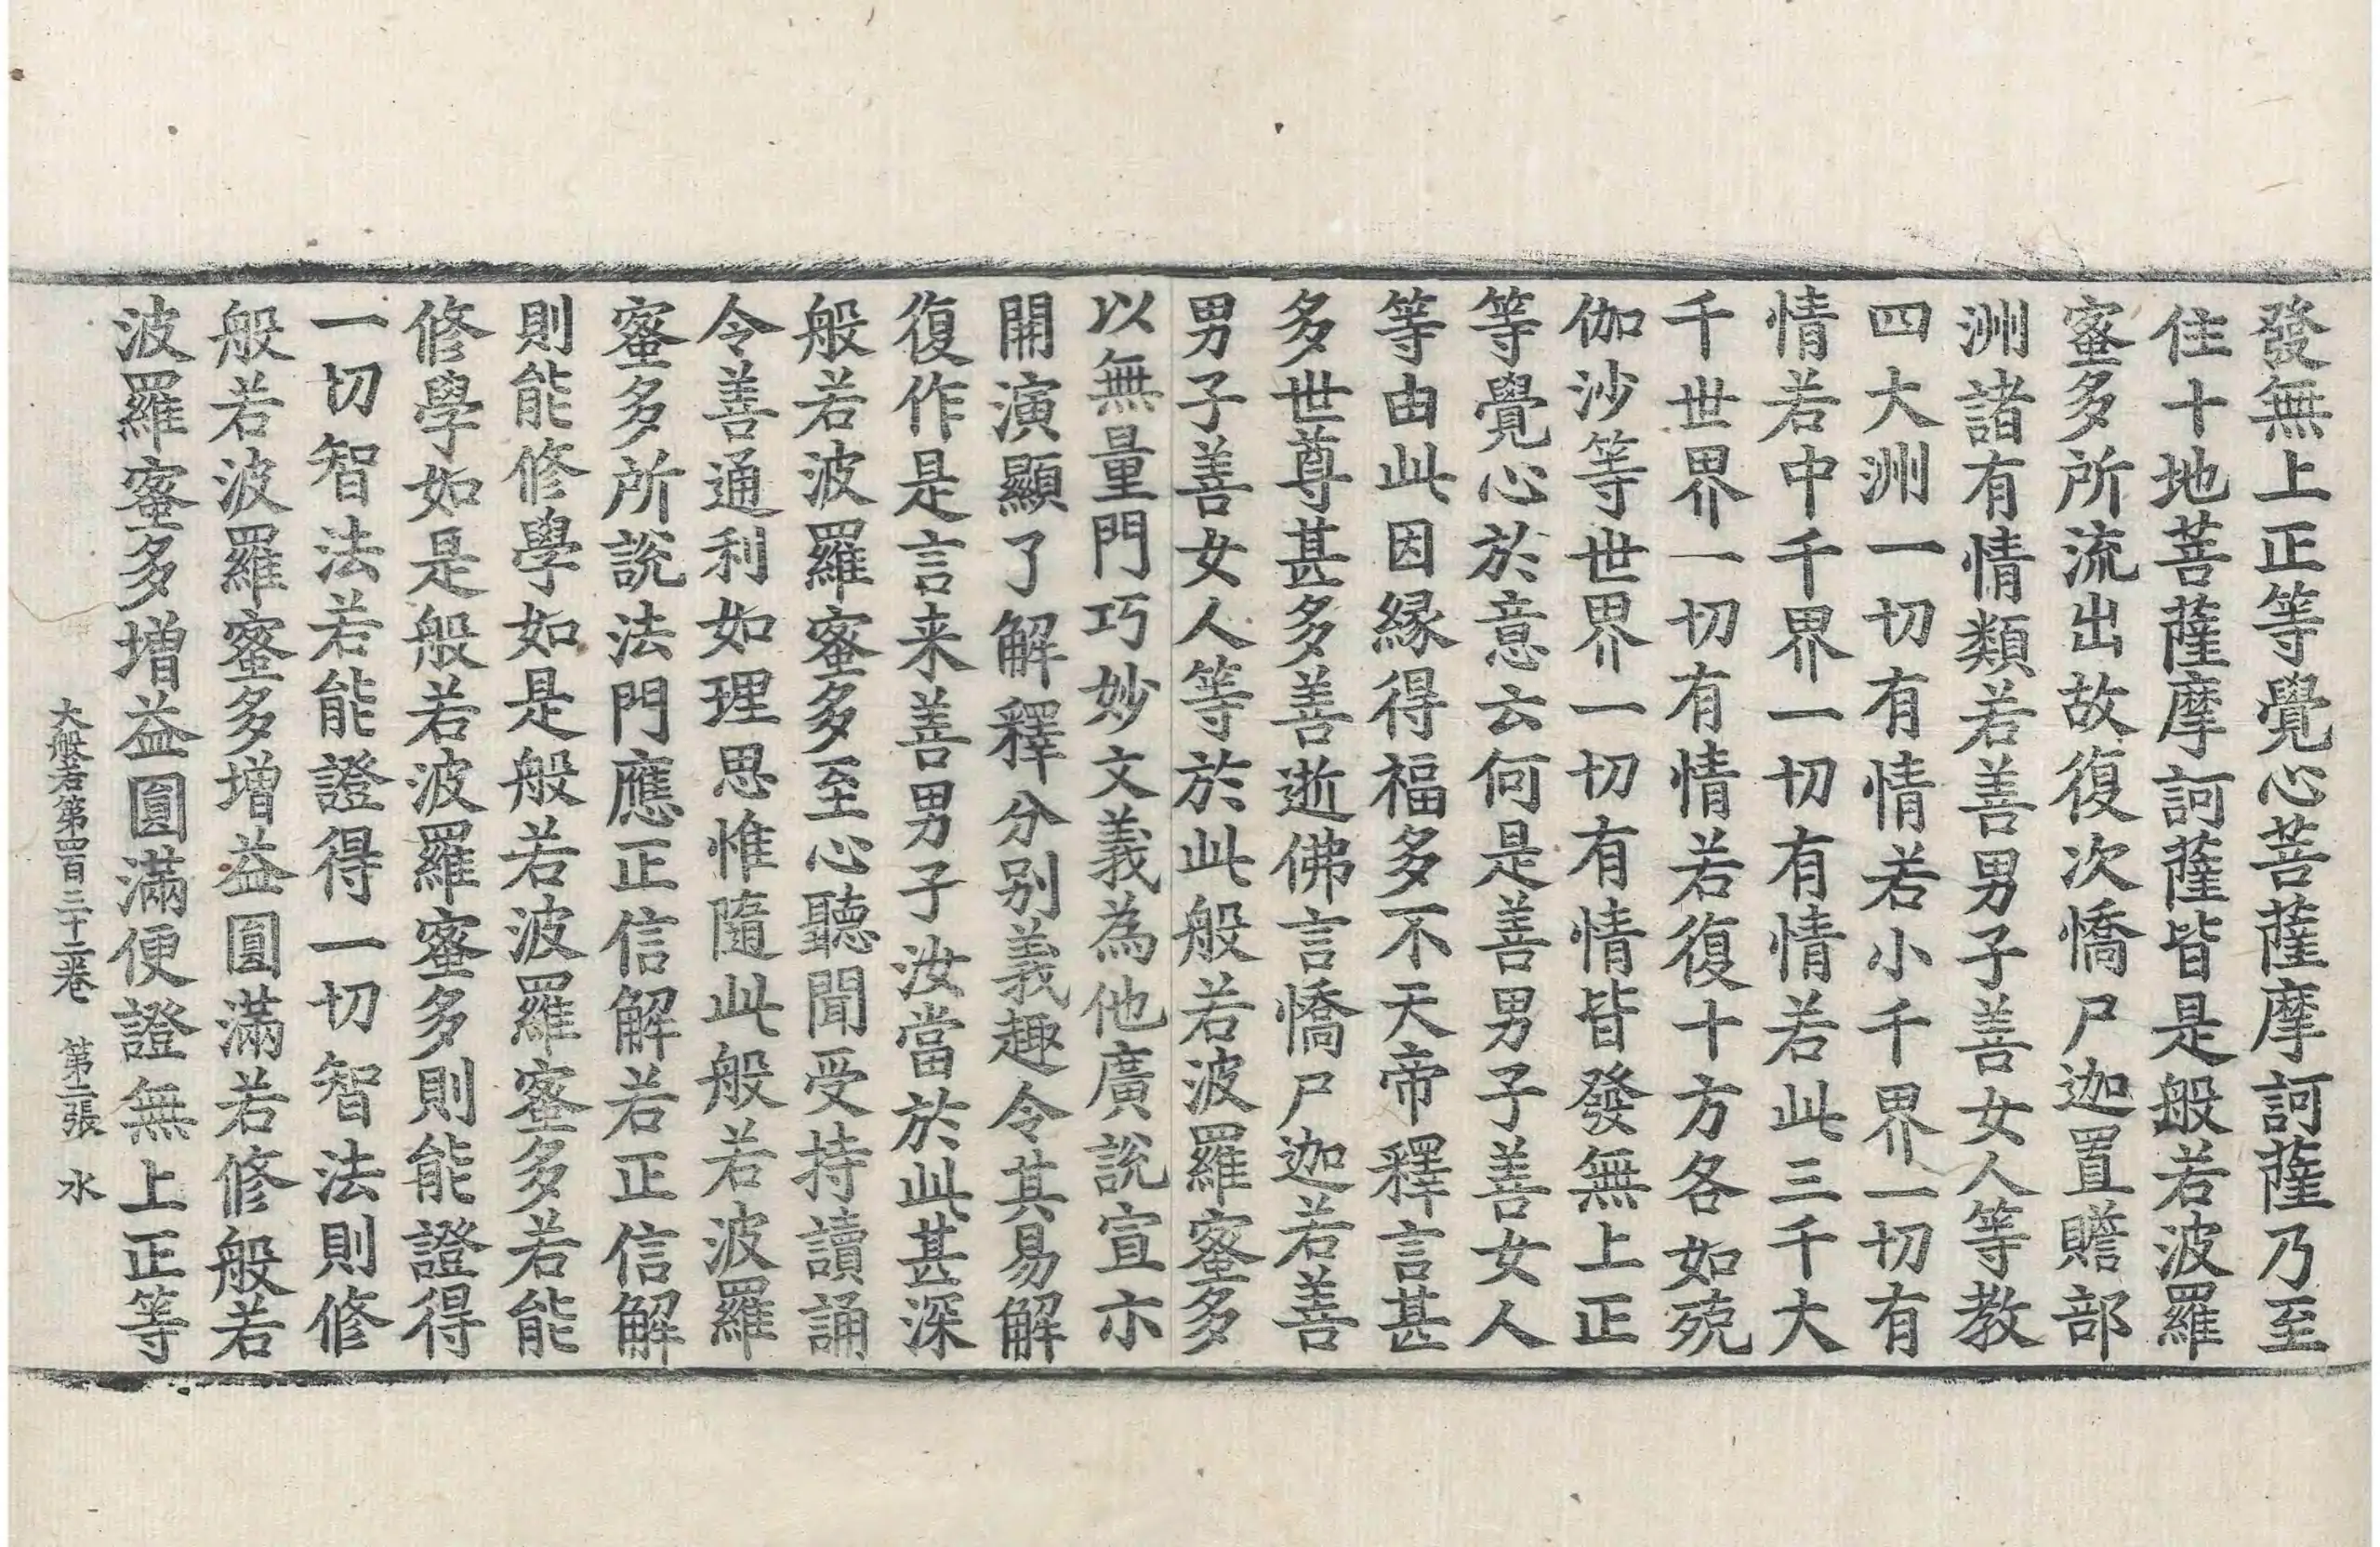 發無上正等覺心菩薩摩訶薩乃至
住十地菩薩摩訶薩皆是般若波羅
蜜多所流出故復次憍尸迦置贍部
洲諸有情類若善男子善女人等教
四大洲一切有情若小千界一切有
情若中千界一切有情若此三千大
千世界一切有情若復十方各如殑
伽沙等世界一切有情皆發無上正
等覺心於意云何是善男子善女人
等由此因緣得福多不天帝釋言甚
多世尊甚多善逝佛言憍尸迦若善
男子善女人等於此般若波羅蜜多
以無量門巧妙文義為他廣說宣亦
開演顯了解釋分別義趣令其易解
復作是言来善男子汝當於此甚深
般若波羅蜜多至心聽聞受持讀誦
令善通利如理思惟隨此般若波羅
蜜多所說法門應正信解若正信解
則能修學如是般若波羅蜜多若能
修學如是般若波羅蜜多則能證得
一切智法若能證得一切智法則修
般若波羅蜜多增益圓滿若修般若
波羅蜜多增益圓滿便證無上正等
大般若第四百三十二卷 第二張 水